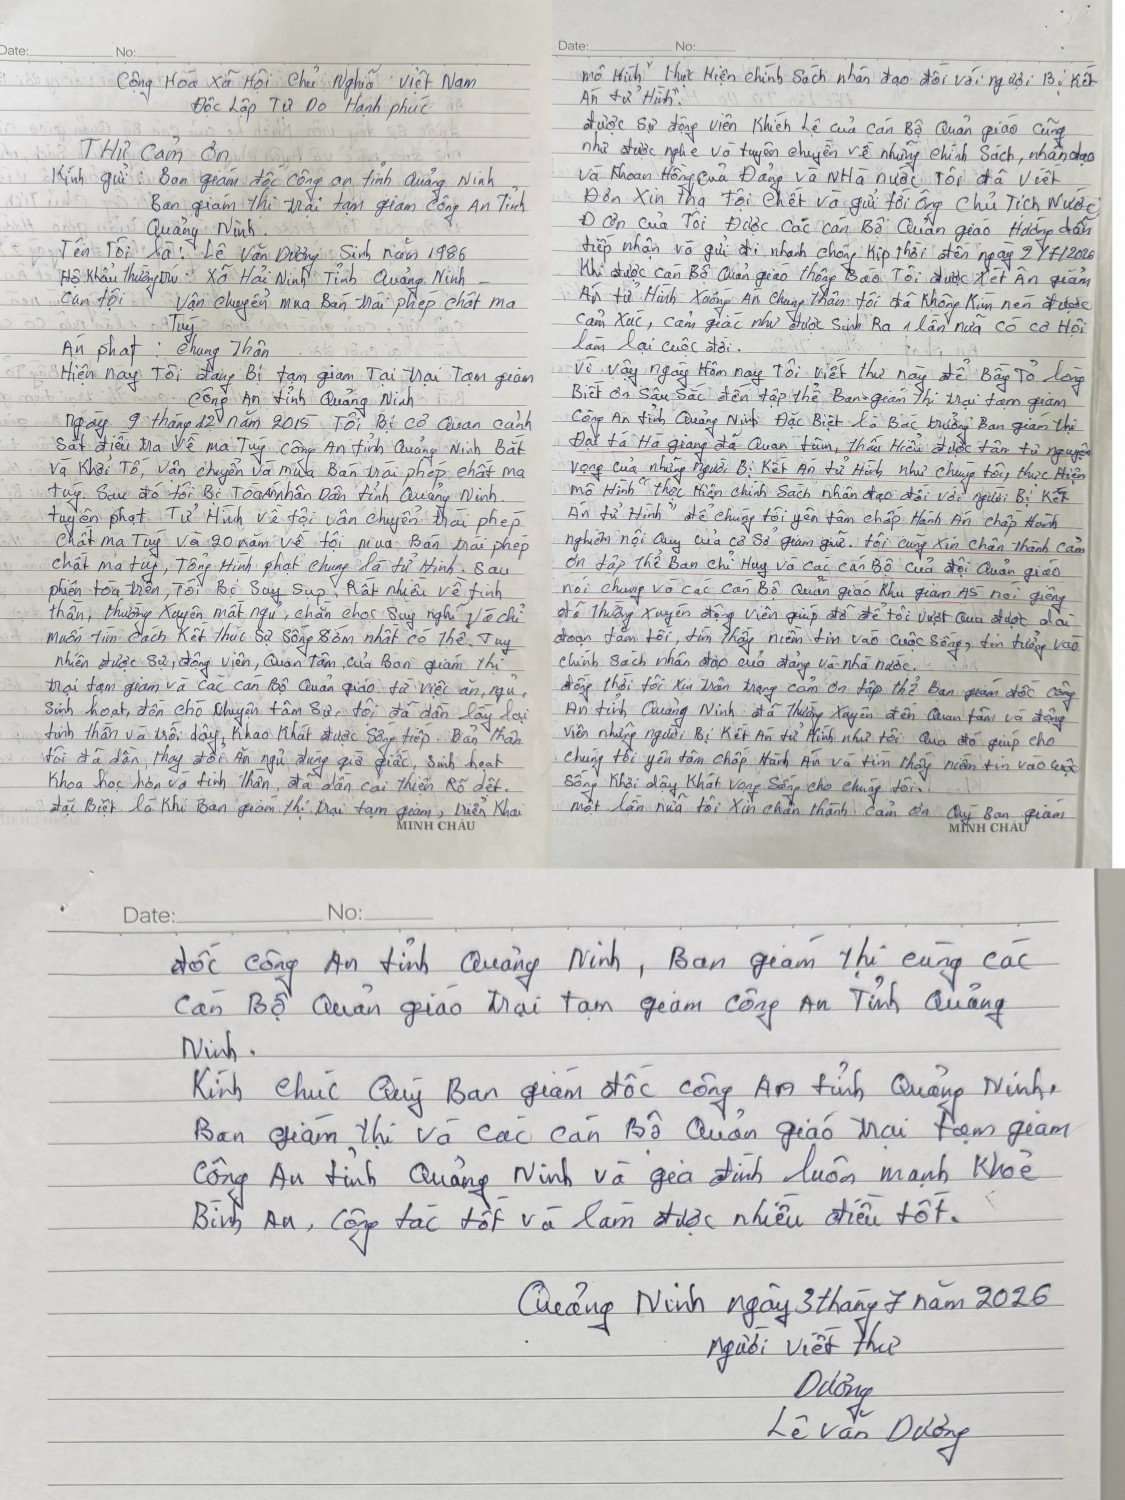 Date: No:
Cộng Hoà Xã Hội Chủ Nghĩa Việt Nam
Độc Lập Tự Do Hạnh phúc
THƯ Cảm ơn
Kính gửi: Ban giám đốc công an tỉnh Quảng Ninh
Ban giám thị trại tạm giam Công An Tỉnh
Quảng Ninh.
Tên Tôi là: Lê Văn Dương Sinh năm 1986
Hộ Khẩu Thường trú: Xã Hải Ninh Tỉnh Quảng Ninh
Can tội Vận chuyển mua Bán trái phép chất ma
Tuý
Án phạt: Chung Thân
Hiện nay Tôi đang Bị tạm giam Tại trại Tạm giam
Công An tỉnh Quảng Ninh
Ngày 9 tháng 12 năm 2015 Tôi Bị cơ Quan cảnh
Sát điều tra về ma Tuý công An tỉnh Quảng Ninh Bắt
và Khởi Tố, vân chuyển và mua Bán trái phép chất ma
tuý. Sau đó tôi Bị Toà Án nhân Dân tỉnh Quảng Ninh
tuyên phạt Tử Hình về tội vân chuyển trái phép
chất ma Tuý và 20 năm về tội mua Bán trái phép
chất ma tuý, Tổng Hình phạt chung là tử Hình. Sau
phiên toà trên, Tôi Bị Suy Sụp Rất nhiều về tinh
thần, thường Xuyên mất ngủ, chằn chọc Suy nghĩ và chỉ
muốn tìm cách Kết thúc Sự Sống Sớm nhất có thể. Tuy
nhiên được Sự động viên, Quan Tâm của Ban giám thị
trại tạm giam và các cán Bộ Quản giáo từ việc ăn, ngủ,
Sinh hoạt, đến chỗ chuyện tâm Sự, tôi đã dần lấy lại
tinh thần và trỗi dậy Khao Khát được Sống tiếp. Bản thân
tôi đã dần thay đổi Ăn ngủ đúng giờ giấc, Sinh hoạt
Khoa học hơn và tinh thần, đã dần cải thiện Rõ dệt.
đặc Biệt là Khi Ban giám thị trại tạm giam, triển Khai
MINH CHÂU
Date: No:
mô Hình" thực Hiện chính Sách nhân đạo đối với người Bị Kết
Án tử Hình".
được Sự động viên Khích Lệ của cán Bộ Quản giáo cũng
như được nghe và tuyên chuyền về những chính Sách, nhân đạo
và Khoan Hồng của Đảng và NHà nước Tôi đã Viết
Đơn Xin Tha Tội Chết và gửi tới ông Chủ Tịch Nước,
Đơn của Tôi Được Các cán Bộ Quản giáo Hướng dẫn
tiếp nhận và gửi đi nhanh chóng Kịp thời đến ngày 2/7/2026
Khi được cán Bộ Quản giáo thông Báo Tôi được xét Ân giảm
Án tử Hình Xuống Án Chung Thân tôi đã Không Kìm nén được
cảm Xúc, cảm giác như được Sinh Ra 1 lần nữa có cơ Hội
làm lại cuộc đời.
Vì vậy ngày Hôm nay Tôi viết thư này để Bày Tỏ lòng
Biết ơn Sâu Sắc đến tập thể Ban giám thị trại tạm giam
Công An tỉnh Quảng Ninh Đặc Biệt là Bác trưởng Ban giám thị
Đại tá Hà giang đã Quan tâm, thấu Hiểu được tâm tư nguyện
vọng của những người Bị Kết Án tử Hình như chúng tôi, thực Hiện
mô Hình "thực Hiện chính Sách nhân đạo đối với người Bị Kết
Án tử Hình" để chúng tôi yên tâm chấp Hành Án chấp Hành
nghiêm nội Quy của cơ Sở giam giữ. tôi cũng Xin chân thành cảm
ơn tập thể Ban chỉ Huy và các cán Bộ của đội Quản giáo
nói chung và các cán Bộ Quản giáo Khu giam A5 nói giêng
đã thường Xuyên động viên giúp đỡ để tôi vượt Qua được giai
đoạn tăm tối, tìm thấy niềm tin vào cuộc Sống, tin tưởng vào
chính Sách nhân đạo của đảng và nhà nước.
đồng thời tôi Xin trân trọng cảm ơn tập thể Ban giám đốc công
An tỉnh Quảng Ninh đã thường Xuyên đến Quan tâm và động
viên những người Bị Kết Án tử Hình như tôi Qua đó giúp cho
chúng tôi yên tâm chấp Hành Án và tìm thấy niềm tin vào cuộc
Sống Khơi dậy Khát vọng Sống cho chúng tôi.
một lần nữa tôi Xin chân thành cảm ơn Quý Ban giám
MINH CHÂU
Date: No:
đốc công An tỉnh Quảng Ninh, Ban giám thị cùng các
cán Bộ Quản giáo trại tạm giam công An Tỉnh Quảng
Ninh.
Kính chúc Quý Ban giám đốc công An tỉnh Quảng Ninh,
Ban giám thị và các cán Bộ Quản giáo trại tạm giam
Công An tỉnh Quảng Ninh và gia đình luôn mạnh Khoẻ
Bình An, Công tác tốt và làm được nhiều điều tốt.
Quảng Ninh ngày 3 tháng 7 năm 2026
Người viết thư
Dương
Lê Văn Dương